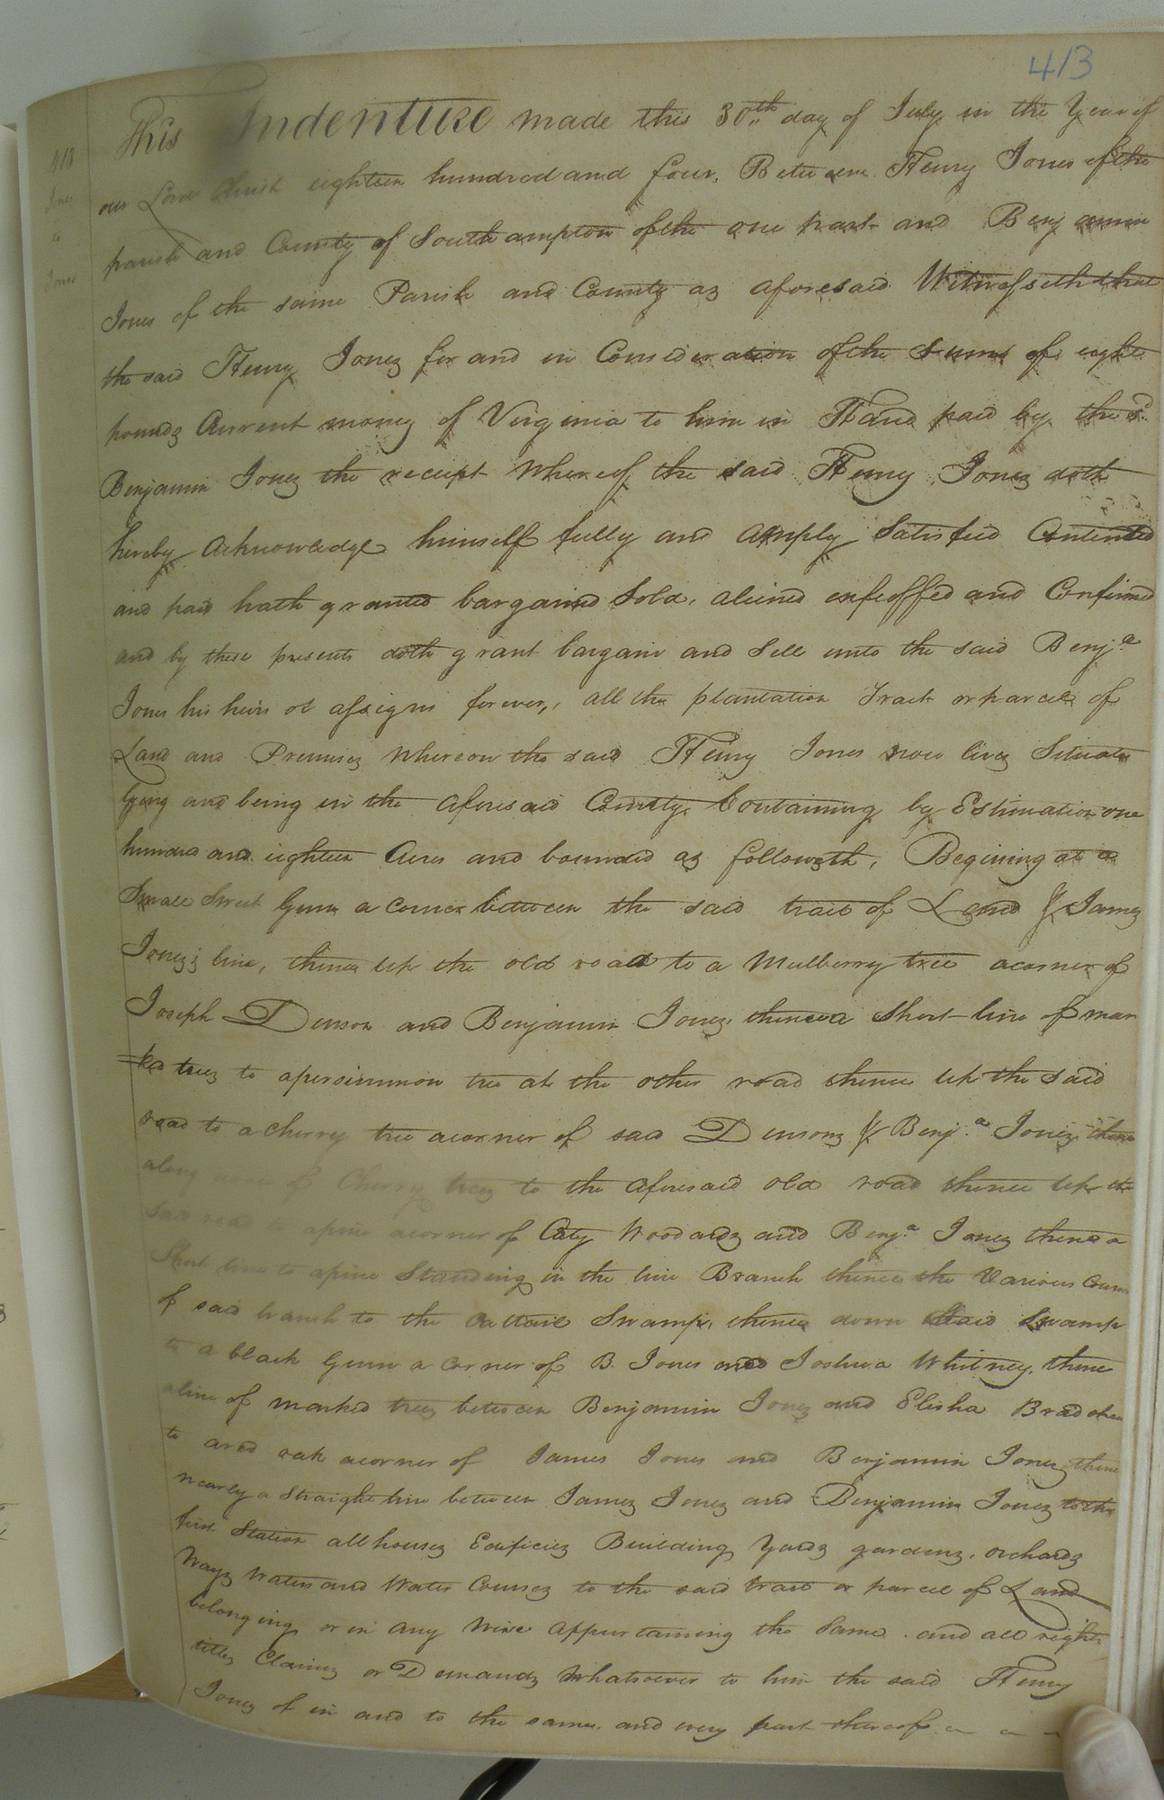 413
This Indenture made this 30th day of July in the Year of
413
Jones
to
Jones
our Lord Christ eighteen hundred and four, Between Henry Jones of the
parish and County of Southampton of the one part and Benjamin
Jones of the same Parish and County as aforesaid Witnesseth that
the said Henry Jones for and in Consideration of the Sum of eight
pounds Current money of Virginia to him in Hand paid by the sd.
Benjamin Jones the receipt Whereof the said Henry Jones doth
hereby Acknowledge himself fully and Amply Satisfied Contented
and paid hath granted bargained Sold, aliened enfeoffed and Confirmed
and by these presents doth grant bargain and Sell unto the said Benja
Jones his heirs or assigns forever, all the plantation Tract or parcel of
Land and Premises Whereon the said Henry Jones now lives Situate
lying and being in the aforesaid County, Containing by Estimation one
hundred and eighteen Acres and bounded as followeth, Begining at a
Small Sweet Gum a corner between the said tract of Land & James
Jones's line, thence up the old road to a Mulberry tree a corner of
Joseph Denson and Benjamin Jones thence a Short line of mar
=ked trees to a persimmon tree at the other road thence up the said
road to a cherry tree a corner of said Densons & Benj.a Jones thence
along Cherry trees to the aforesaid old road thence up the
said road to a pine a corner of Caty Woodards and Benj.a Jones thence a
Short line to a pine Standing in the line Branch thence the Various Cours
of said branch to the Cattail Swamp, thence down Said Swamp
to a black Gum a corner of B. Jones and Joshua Whitney, thence
a line of marked trees between Benjamin Jones and Elisha Bradshaw
to a red oak a corner of James Jones and Benjamin Jones thence
nearly a Straight line between James Jones and Benjamin Jones to the
first Station all houses Edificies Building Yards gardens, orchards
Ways Waters and Water Courses to the said tract or parcel of Land
belonging or in any Wise appurtaining the Same. and all rights
titles Claims or Demands Whatsoever to him the said Henry
Jones of in and to the same. and every part thereof